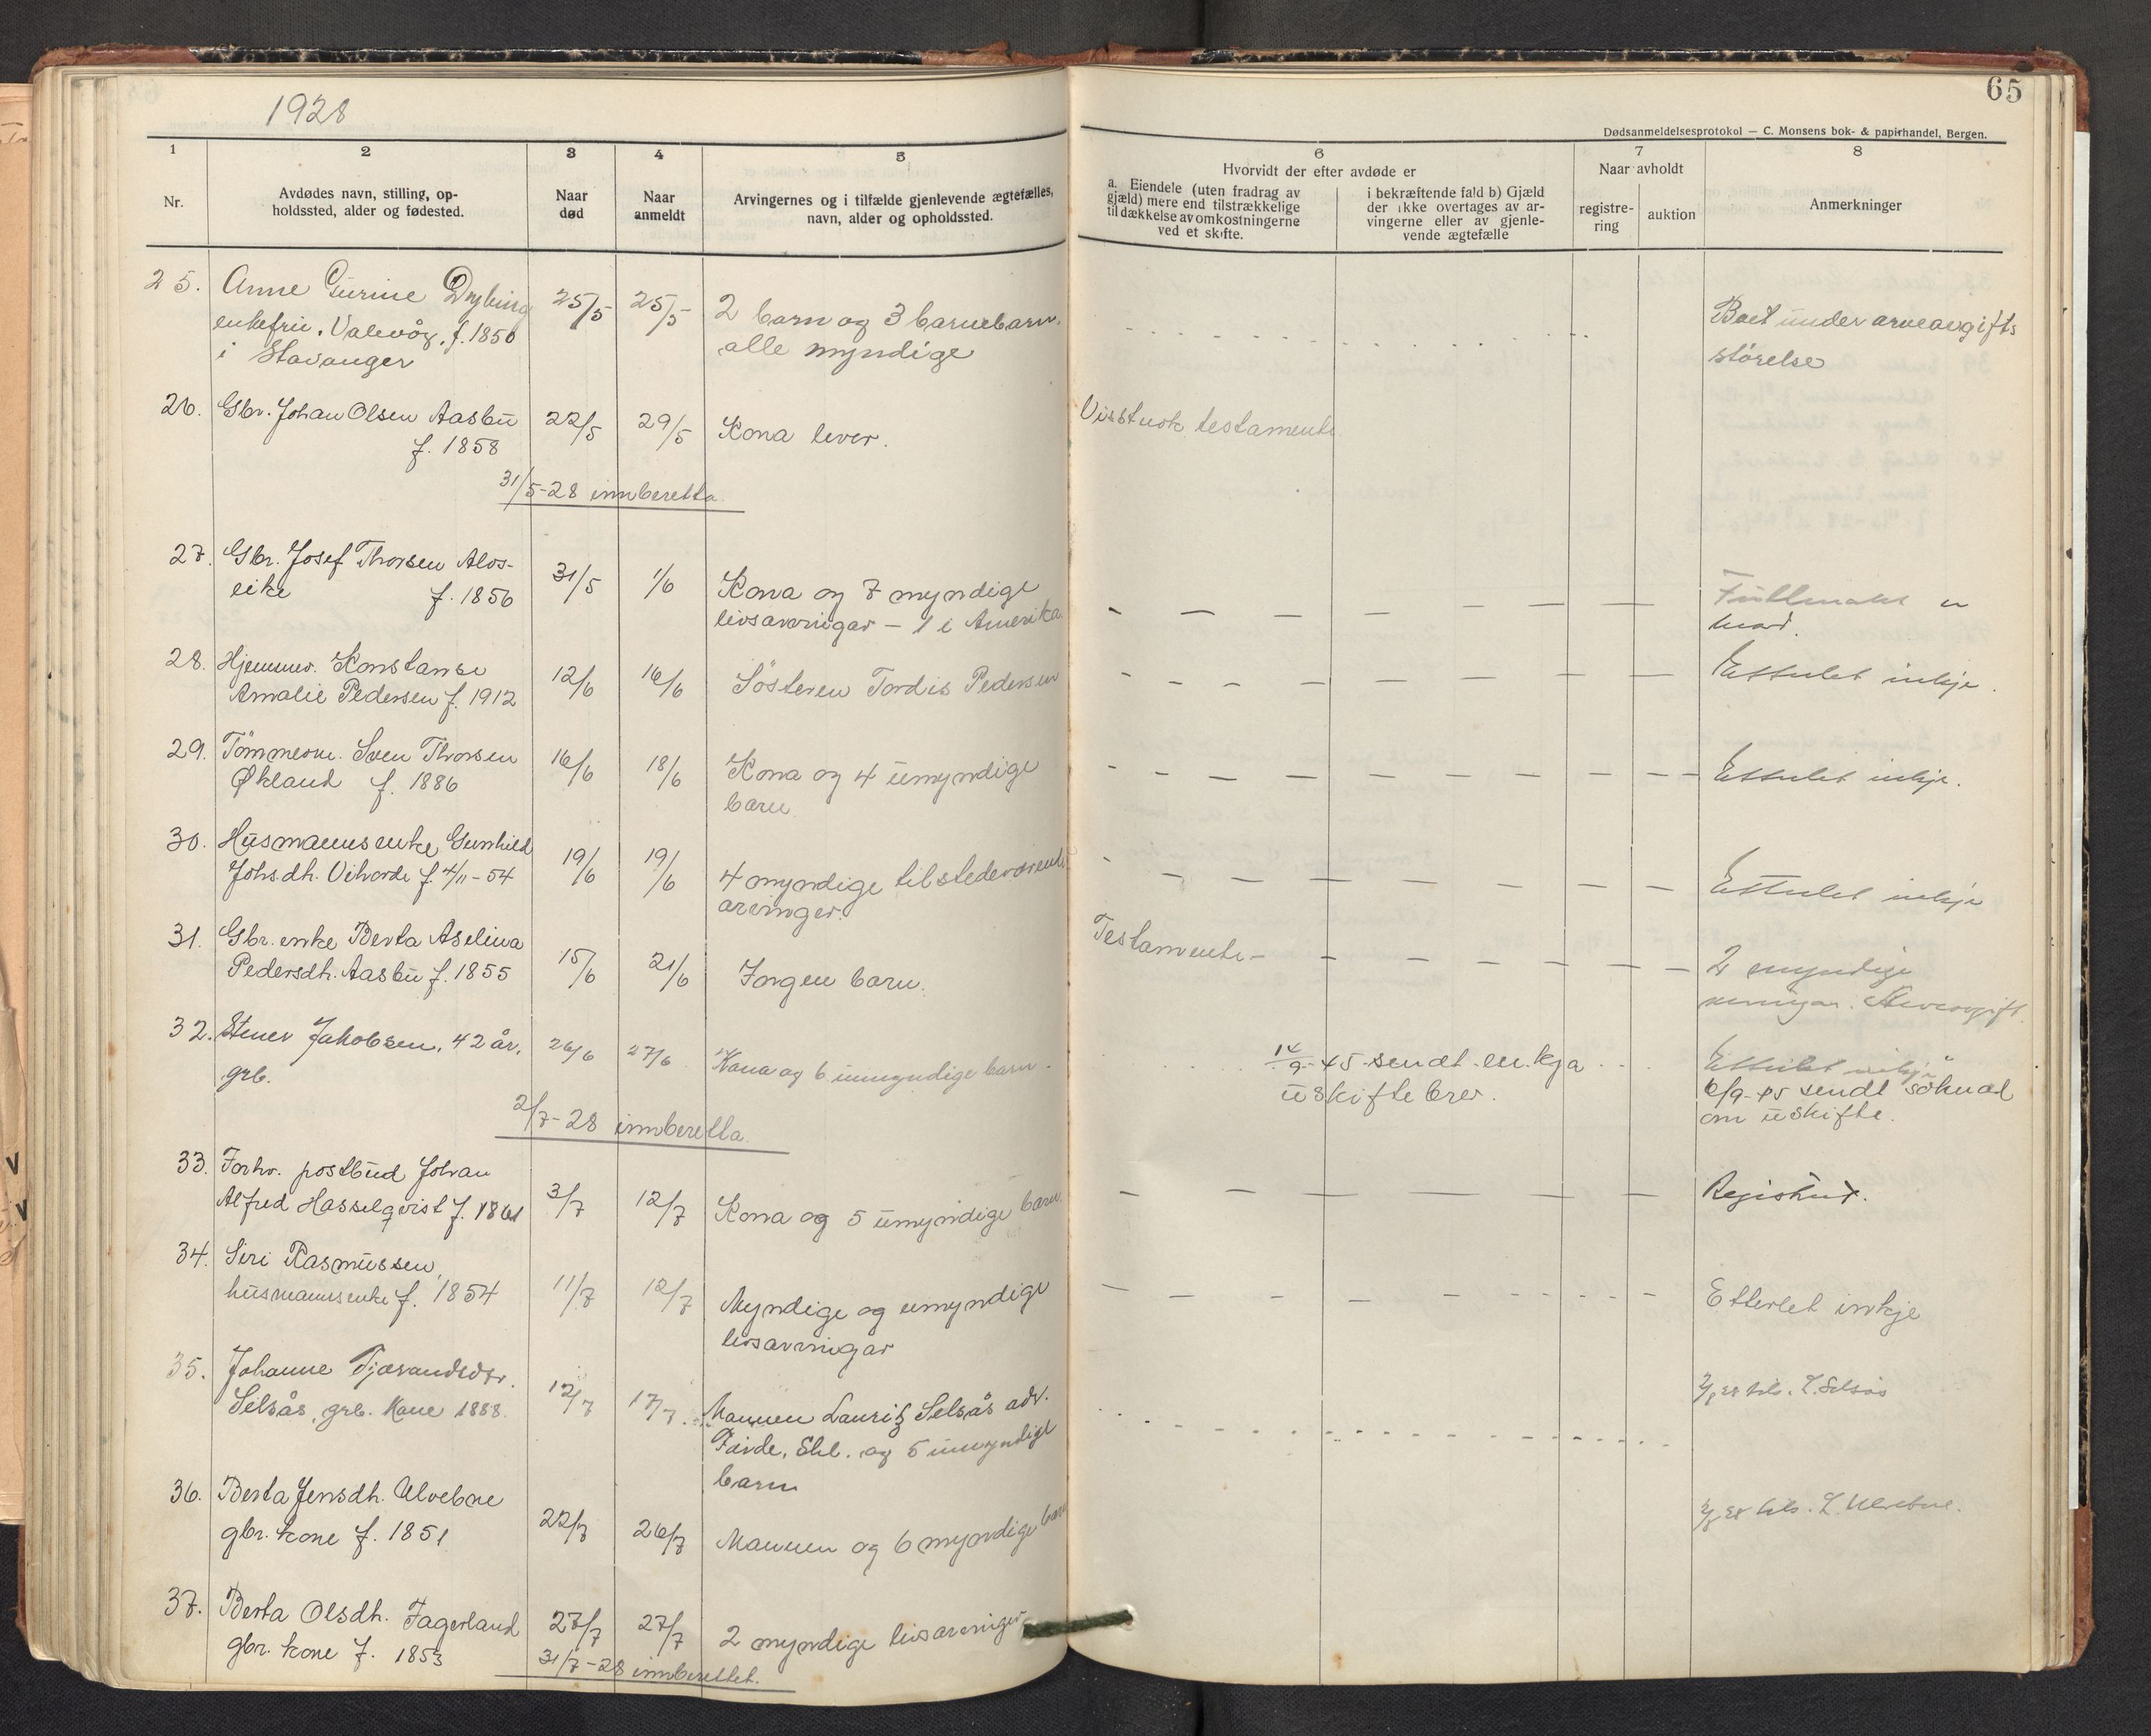 1928
65
Dødsanmeldelsesprotokol — C. Monsens bok- & papirhandel, Bergen.
1 2 3 4 5 6 7 8
Nr.
Avdødes navn, stilling, op-
holdssted, alder og fødested.
Naar
død
Naar
anmeldt
Arvingernes og i tilfælde gjenlevende ægtefælles,
navn, alder og opholdssted.
Hvorvidt der efter avdøde er
a. Eiendele (uten fradrag av
gjæld) mere end tilstrækkelige
til dækkelse av omkostningerne
ved et skifte.
i bekræftende fald b) Gjæld
der ikke overtages av ar-
vingerne eller av gjenle-
vende ægtefælle
Naar avholdt
registre-
ring
auktion
Anmerkninger
25. Anne Gurine Dybing 25/5 25/5 2 barn og 3 barnebarn, Boet under arveavgifts
enkefru. Valevåg, f. 1850 alle myndige størelse
i Stavanger
26. Gbr. Johan Olsen Aasbu 22/5 29/5 Kona lever. Visstnok testamente
f. 1858
31/5-28 innberetta.
27. Gbr. Josef Thorsen Alos- 31/5 1/6 Kona og 7 myndige
eike f. 1856 livsarvingar - 1 i Amerika
28. Hjemmev. Konstanse 12/6 16/6 Søsteren Tordis Pedersen Etterlet inkje.
Amalie Pedersen f. 1912
29. Tömmerm. Sven Thorsen 16/6 18/6 Kona og 4 umyndige Etterlet inkje.
Økland f. 1886 barn
30. Husmannsenke Gunhild 19/6 19/6 4 myndige tilstedeværende Etterlet inkje
Johs.dh. Vihovde f. 4/11-54 arvinger.
31. Gbr. enke Berta Aselina 15/6 21/6 Ingen barn. Testamente 2 myndige
Pedersdh. Aasbu f. 1855 arvingar. Arveavgift.
32. Stener Jakobsen, 42 år. 26/6 27/6 Kona og 6 umyndige barn. 14/9-45 sendt enkja Etterlet inkje
grb. uskiftebrev. 6/9-45 sendt söknad
om uskifte.
2/7-28 innberetta.
33. Forhv. postbud Johan 3/7 12/7 Kona og 5 umyndige barn. Registrert.
Alfred Hasselqvist f. 1861
34. Siri Rasmussen, 11/7 12/7 Myndige og umyndige Etterlet inkje
husmannsenke f. 1854 livsarvingar
35. Johanne Tjærandsdtr. 12/7 17/7. Mannen Lauritz Selsås adr.
Selsås, grb. Kone 1888. Førde, Shl. og 5 umyndige
barn
36. Berta Jensdh. Ulvebne 22/7 26/7 Mannen og 6 myndige barn
gbr. kone f. 1851
37. Berta Olsdh. Fagerland 27/7 27/7 2 myndige livsarvinger
gbr. kone f. 1853
31/7-28 innberettet.